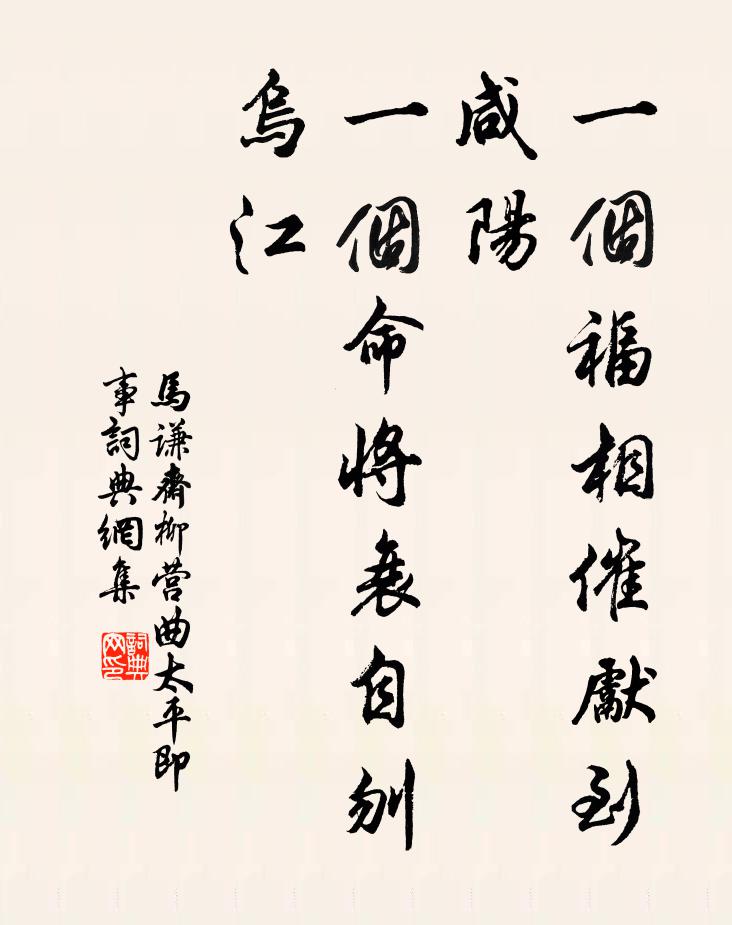 一個福相催獻到
咸陽
一個命將衰自刎
烏江
馬謙齋柳营曲太平即
事詞典網集
詞典
网印